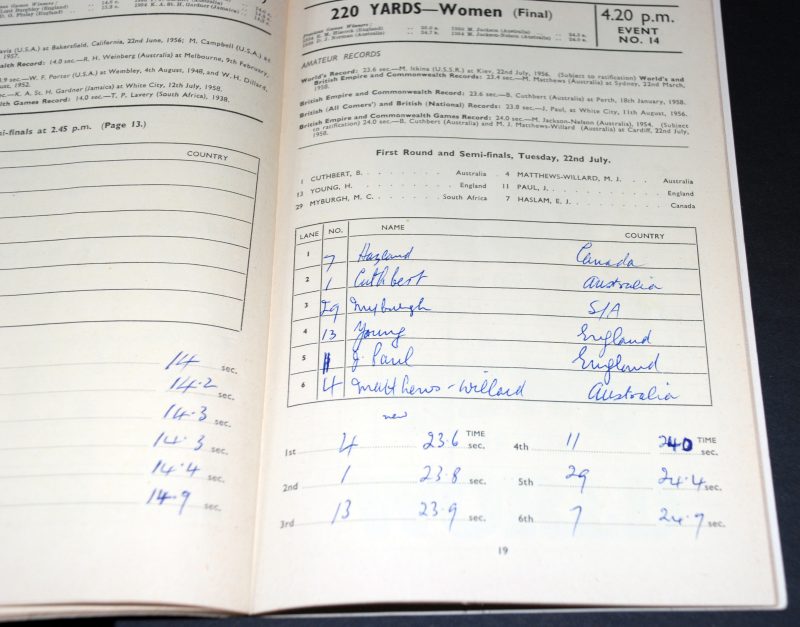 14.0 s.
avis (U.S.A.) at Bakersfield, California, 22nd June, 1956; M. Campbell (U.S.A.) at
1957.
Record: 14.0 sec.—R. H. Weinberg (Australia) at Melbourne, 9th February,
W. F. Porter (U.S.A.) at Wembley, 4th August, 1948, and W. H. Dillard,
ugust, 1952.
sec.—K. A. St. H. Gardner (Jamaica) at White City, 12th July, 1958.
Games Record: 14.0 sec.—T. P. Lavery (South Africa), 1938.
mi-finals at 2.45 p.m. (Page 13.)
COUNTRY
14 sec.
14.2 sec.
14.3 sec.
14.3 sec.
14.4 sec.
14.9 sec.
220 YARDS—Women (Final)
4.20 p.m.
EVENT
NO. 14
AMATEUR RECORDS
World's Record: 23.6 sec.—M. Itkina (U.S.S.R.) at Kiev, 22nd July, 1956. (Subject to ratification) World's and
British Empire and Commonwealth Records: 23.4 sec.—M. Matthews (Australia) at Sydney, 22nd March,
1958.
British Empire and Commonwealth Record: 23.6 sec.—B. Cuthbert (Australia) at Perth, 18th January, 1958.
British (All Comers') and British (National) Records: 23.8 sec.—J. Paul, at White City, 11th August, 1956.
British Empire and Commonwealth Games Record: 24.0 sec.—M. Jackson-Nelson (Australia), 1954. (Subject
to ratification) 24.0 sec.—B. Cuthbert (Australia) and M. J. Matthews-Willard (Australia) at Cardiff, 22nd July,
1958.
First Round and Semi-finals, Tuesday, 22nd July.
1 CUTHBERT, B. Australia 4 MATTHEWS-WILLARD, M. J. Australia
13 YOUNG, H. England 11 PAUL, J. England
29 MYBURGH, M. C. South Africa 7 HASLAM, E. J. Canada
LANE NO. NAME COUNTRY
1 7 Hazland Canada
2 1 Cuthbert Australia
3 29 Myburgh S/A
4 13 Young England
5 11 J. Paul England
6 4 Matthews-Willard Australia
new
1st 4 23.6 TIME sec. 4th 11 240 TIME sec.
2nd 1 23.8 sec. 5th 29 24.4 sec.
3rd 13 23.9 sec. 6th 7 24.9 sec.
19